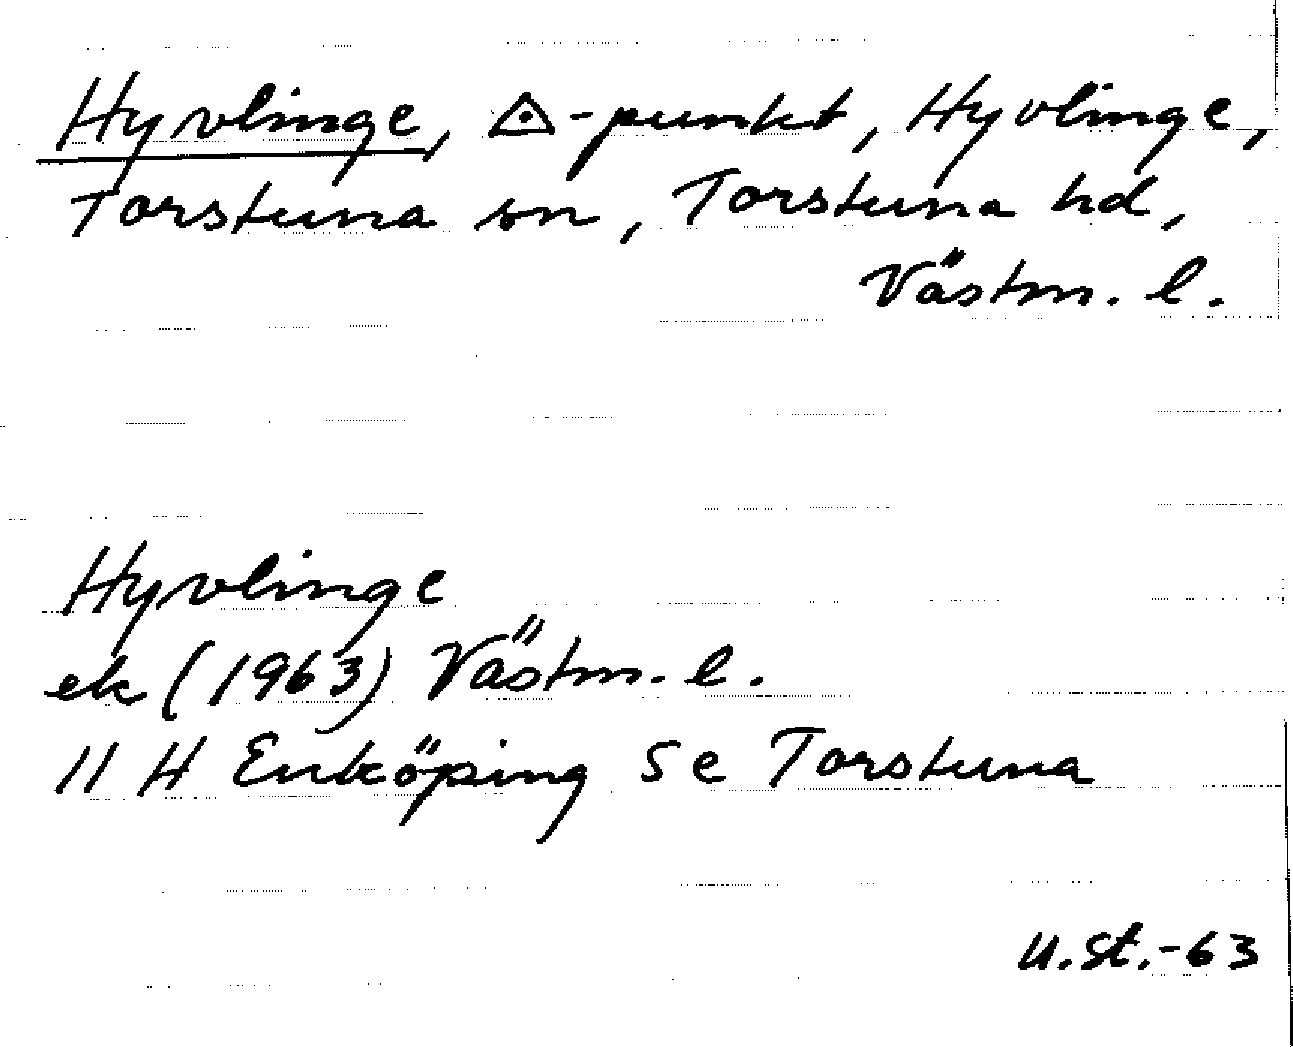 Hyvlinge, ◬-punkt, Hyvlinge,
Torstuna sn, Torstuna hd,
Västm. l.
Hyvlinge
ek (1963) Västm. l.
11 H Enköping Se Torstuna
U.St.-63